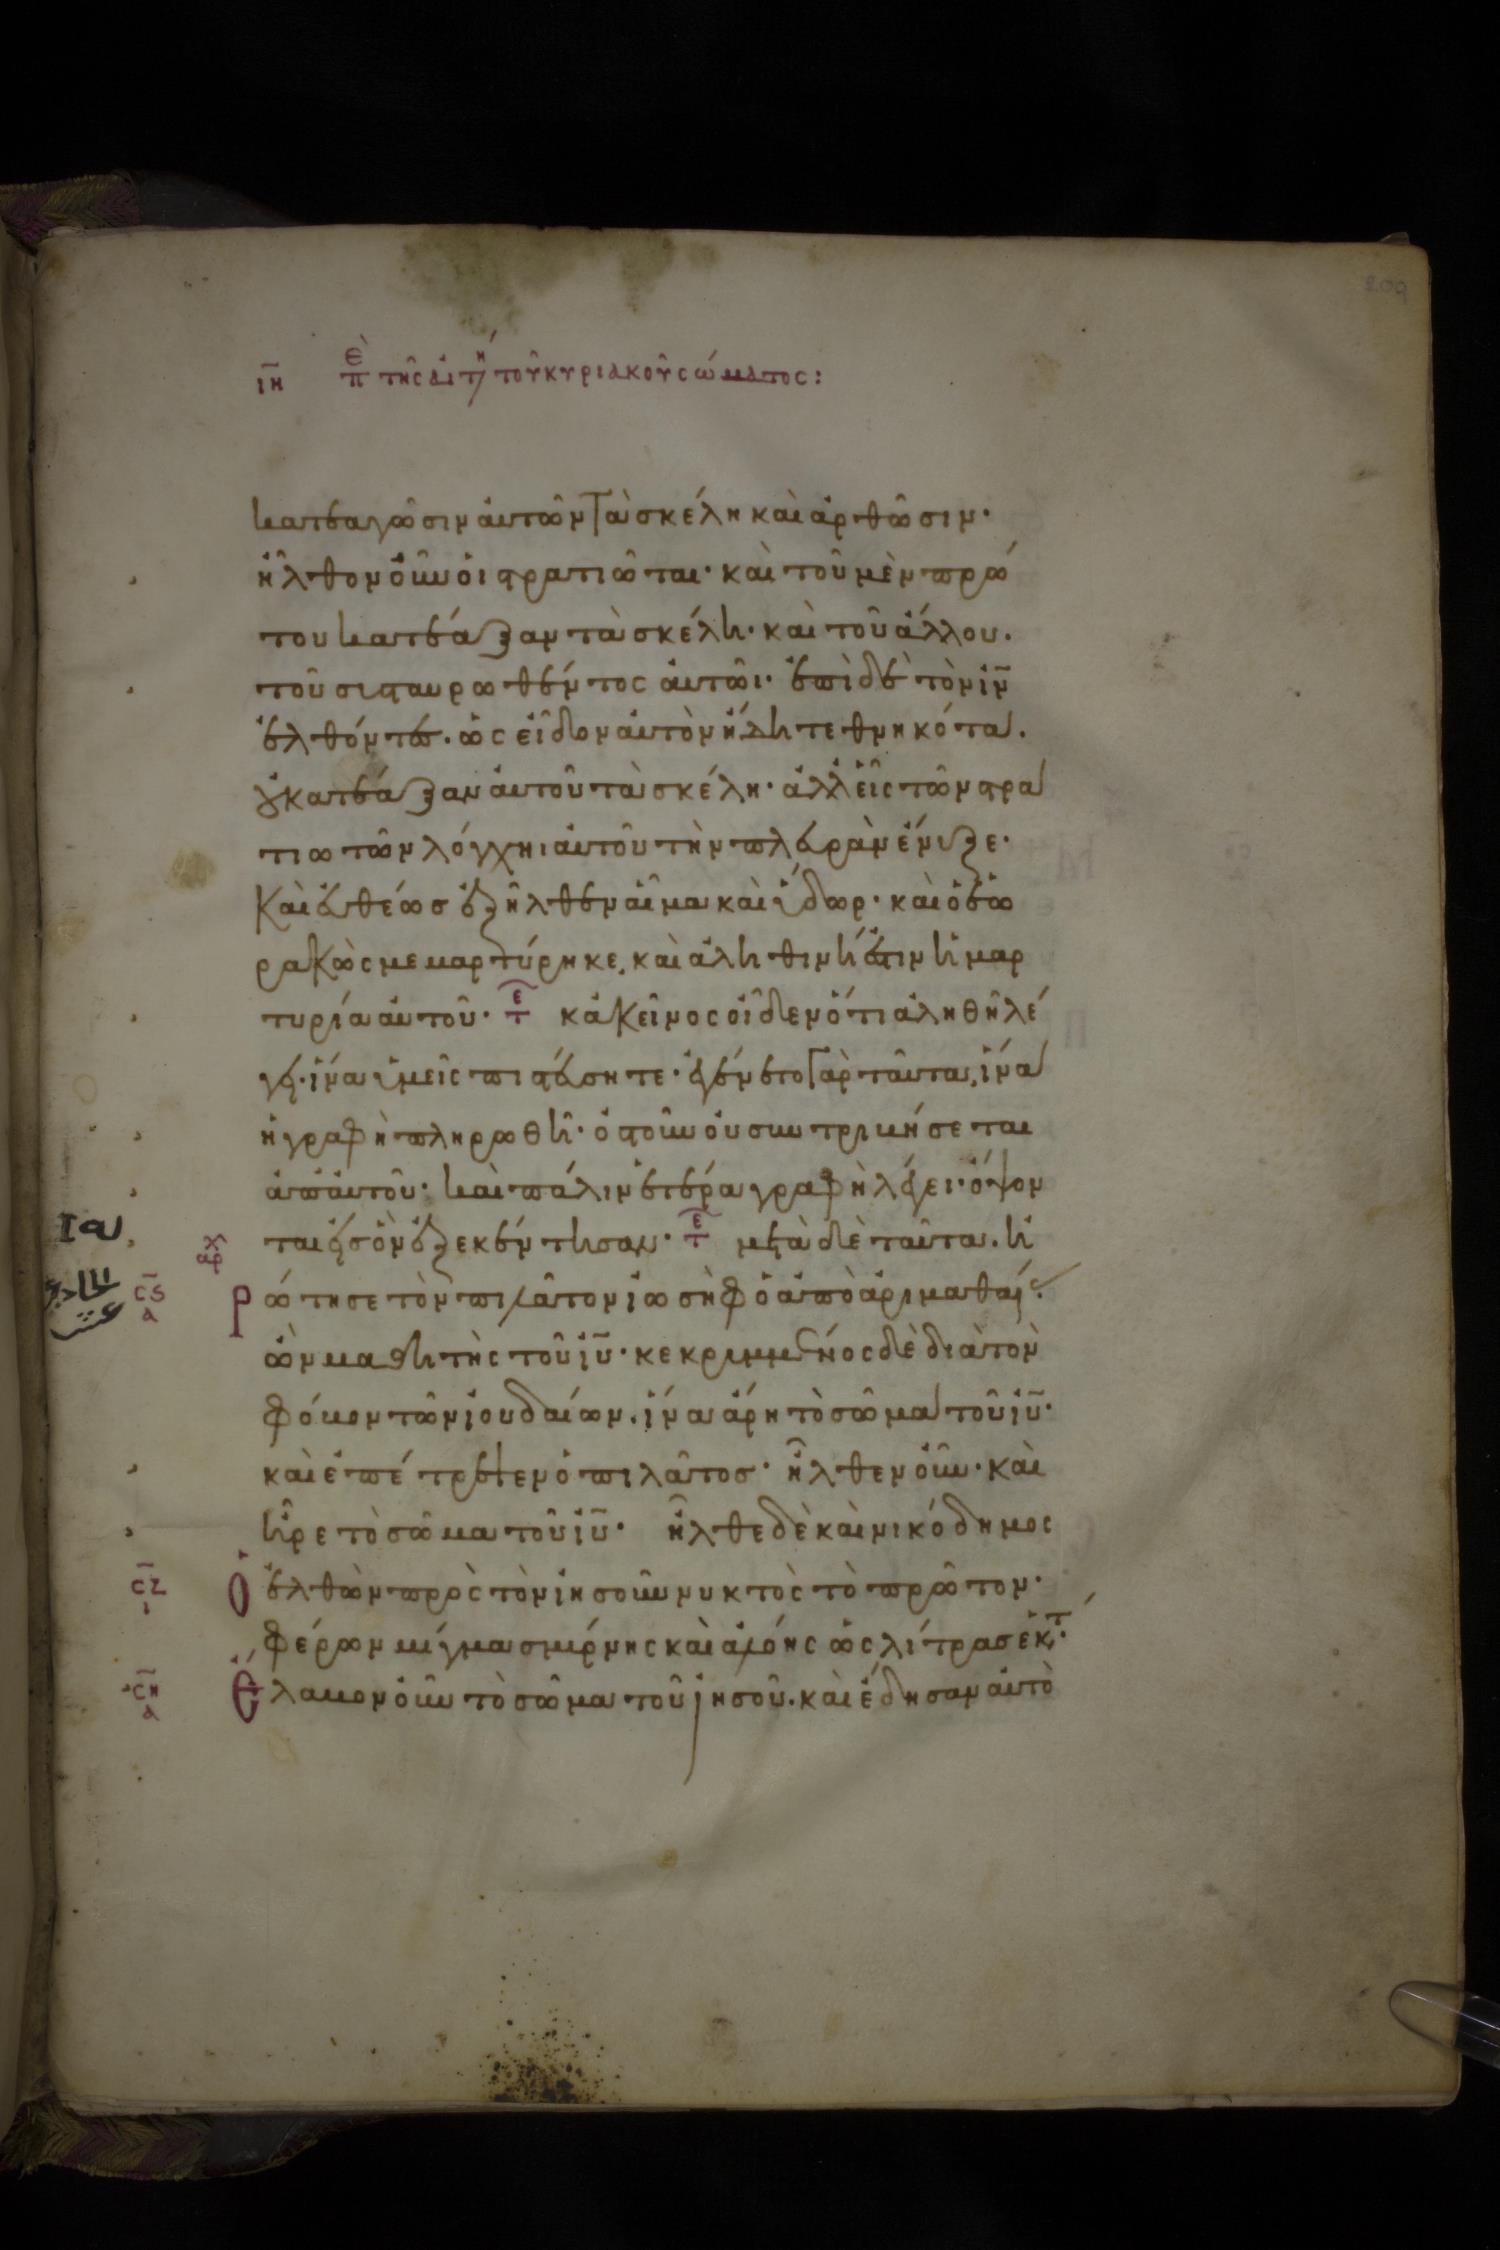 209
ιη περὶ τῆς αἰτή τοῦ κυριακοῦ σώματος:
κατεαγῶσιν αὐτῶν τὰ σκέλη καὶ ἀρθῶσιν·
ἦλθον οὖν οἱ στρατιῶται· καὶ τοῦ μὲν πρώ
του κατέαξαν τὰ σκέλη· καὶ τοῦ ἄλλου.
τοῦ συσταυρωθέντος αὐτῶι· ἐπὶ δὲ τὸν ιν
ἐλθόντες. ὡς εἶδον αὐτὸν ἤδη τεθνηκότα.
οὐ κατέαξαν αὐτοῦ τὰ σκέλη· ἀλλ εἷς τῶν στρα
τιωτῶν λόγχηι αὐτοῦ τὴν πλευρὰν ἔνυξε·
Καὶ εὐθέως ἐξῆλθεν αἷμα καὶ ὕδωρ· καὶ ὁ ἑω
ρακὼς μεμαρτύρηκε, καὶ ἀληθινή ἐστιν ἡ μαρ
τυρία αὐτοῦ· τε κἀκεῖνος οἶδεν ὅτι ἀληθῆ λέ
γει· ἵνα ὑμεῖς πιστεύσητε· ἐγένετο γὰρ ταῦτα, ἵνα
ἡ γραφὴ πληρωθῆ· ὀστοῦν οὐ συντριβήσεται
ἀπ αὐτοῦ· καὶ πάλιν ἑτέρα γραφὴ λέγει· ὄψον
ται εἰς ὃν ἐξεκέντησαν· τε μετὰ δὲ ταῦτα. ἠ
αρχ
ϲϛ α
ρώτησε τὸν πιλᾶτον ἰωσὴφ ὁ ἀπὸ ἀριμαθαί·
ὢν μαθητὴς τοῦ ιυ· κεκρυμμένος δὲ διὰ τὸν
φόβον τῶν ἰουδαίων. ἵνα ἄρη τὸ σῶμα τοῦ ιυ·
καὶ ἐπέτρεψεν ὁ πιλᾶτος· ἦλθεν οὖν· καὶ
ἦρε τὸ σῶμα τοῦ ιυ· ἦλθε δὲ καὶ νικόδημος
ϲζ ι
Ὁ ἐλθὼν πρὸς τὸν ἰησοῦν νυκτὸς τὸ πρῶτον·
φέρων μίγμα σμύρνης καὶ ἀλόης ὡς λίτρας ἑκτ·
ϲη α
Ἔλαβον οὖν τὸ σῶμα τοῦ ἰησοῦ. καὶ ἔδησαν αὐτὸ